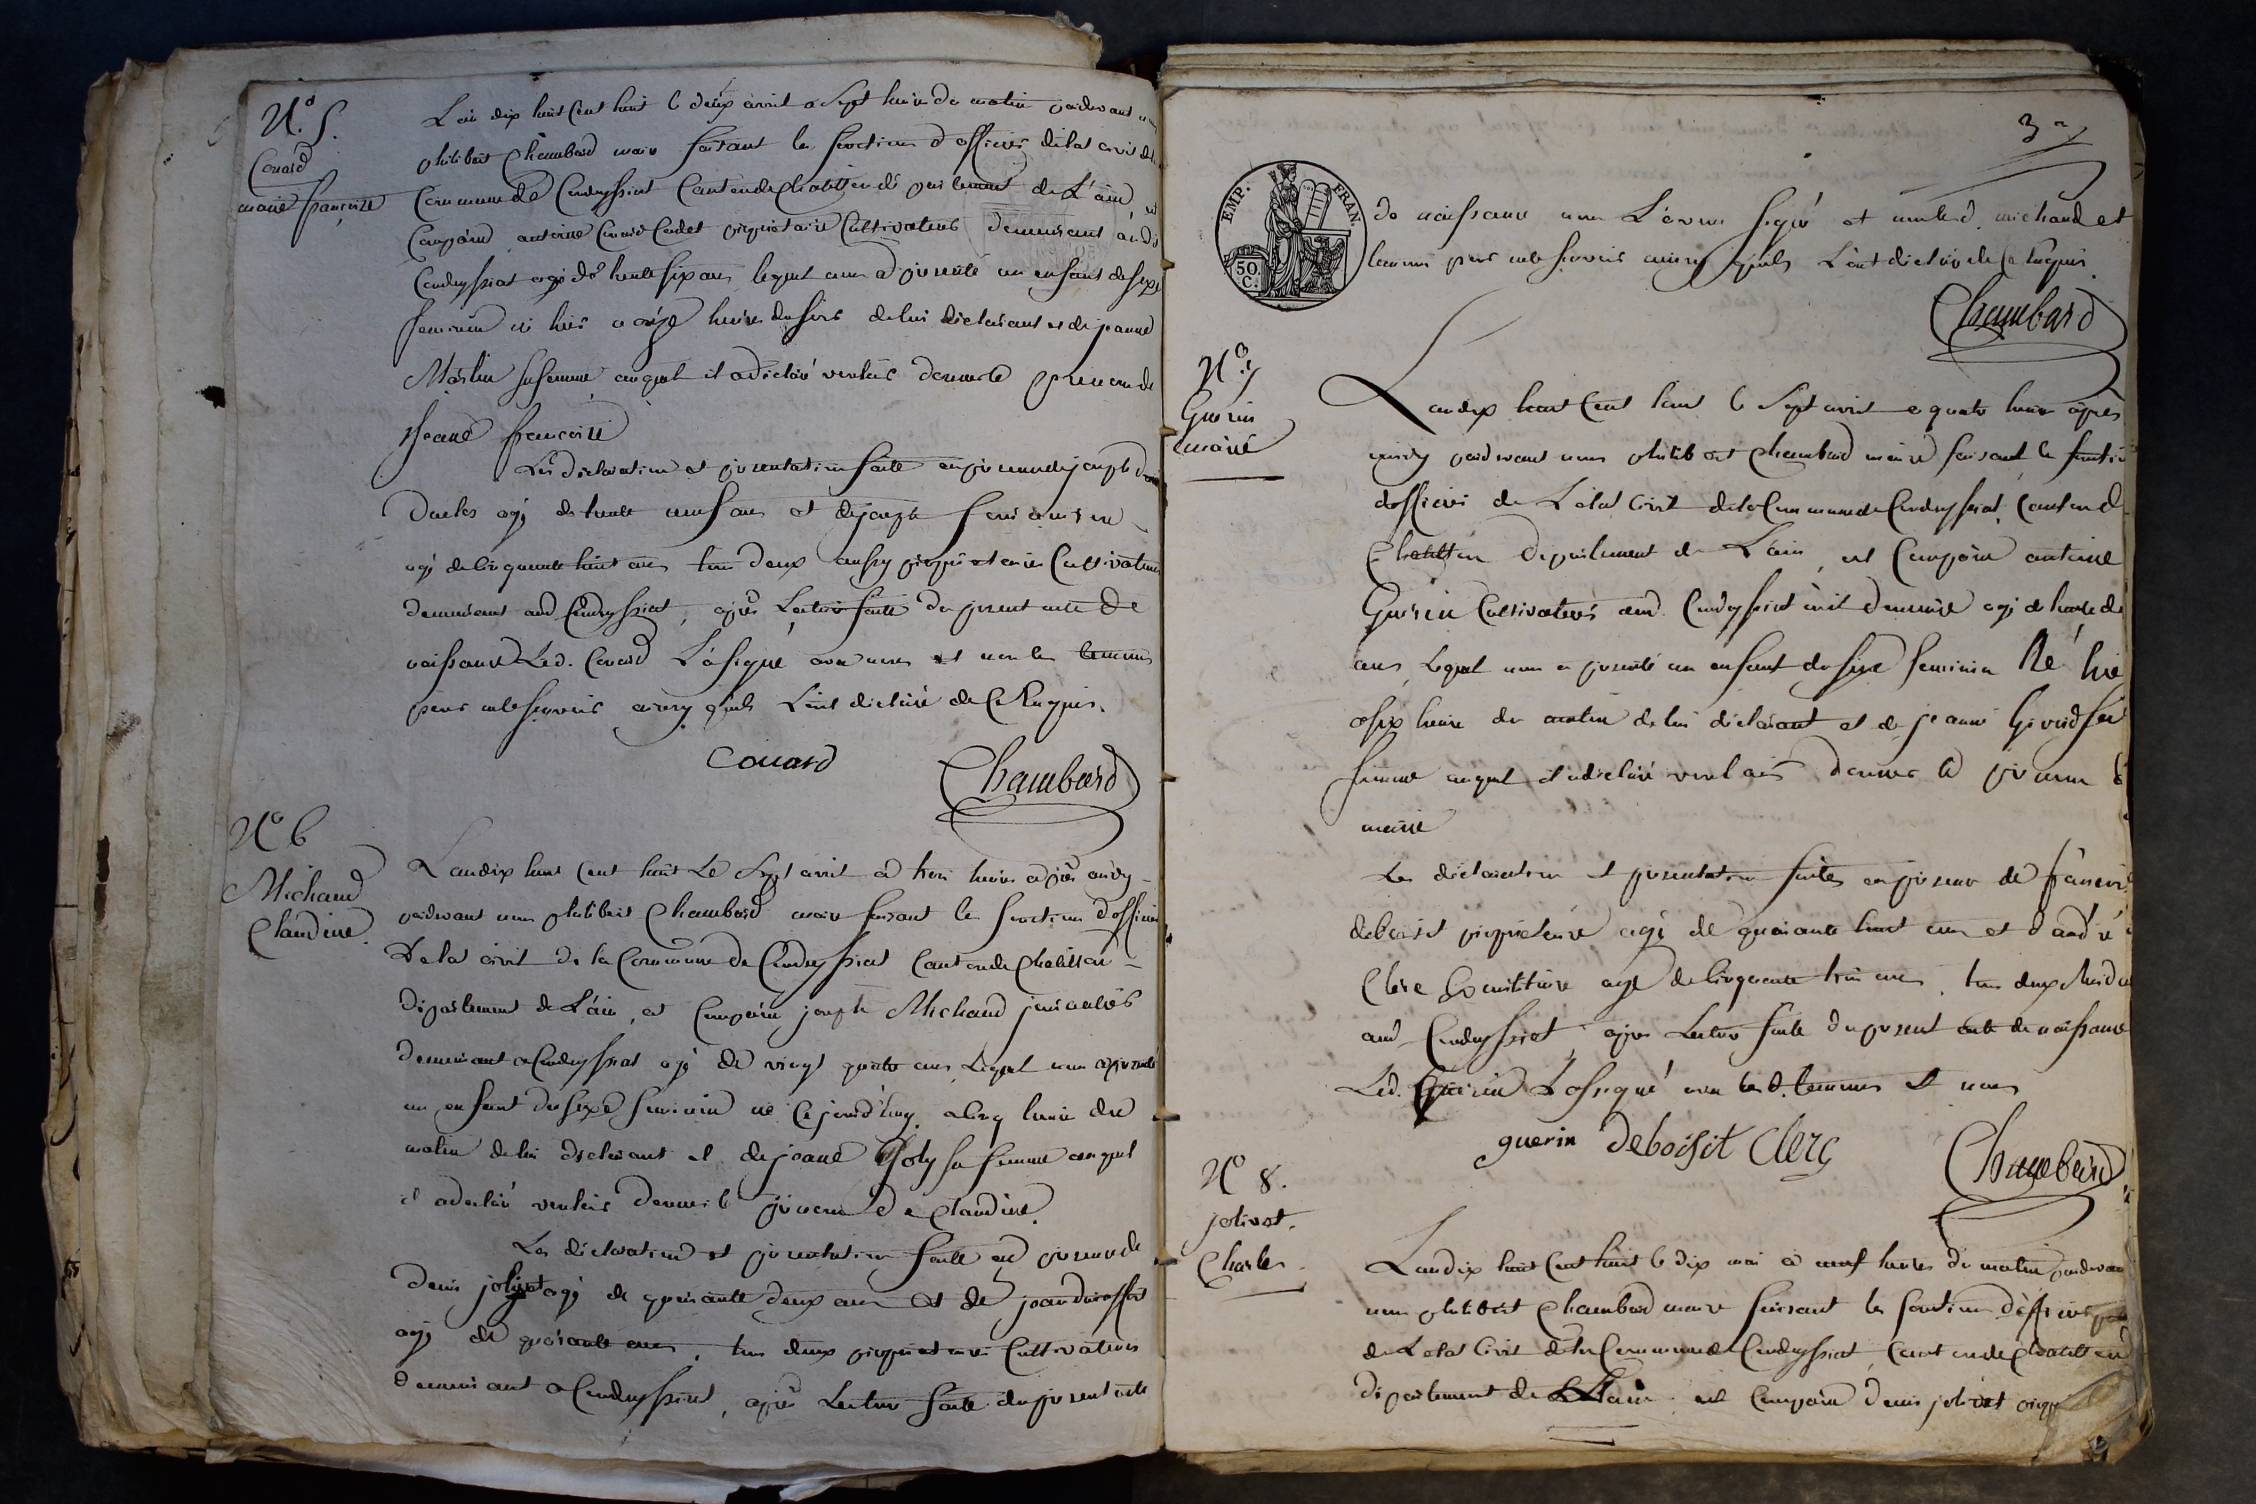 N.º 5.
Couard
marie françoise
L'an dix huit Cent huit le deux avril a Sept heure du matin pardevant nous
philibert Chambard maire faisant les fonctions d'officier de letat civil de la
Commune de Condeyssiat Canton de Chatillon departement de L'ain, est
Comparu antoine Couard Cadet proprietaire Cultivateur demeurant audit
Condeyssiat agé de trente six ans lequel nous a presenté un enfant de sexe
feminin né hier a onze heures du soir de lui declarant et de jeanne
Morlin sa femme auquel il a declaré vouloir donner le prenom de
françoise
Les declaration et presentation faite en presence de joseph
agé de trente neuf ans et de joseph
agé de Cinquante huit ans tous deux aussy proprietaires Cultivateurs
demeurant aud Condeyssiat, après Lecture faite du present acte de
naissance Led. Couard L'a signé avec nous et non les temoins
pour ne le scavoir ainsy qu'ils L'ont declaré de Ce Enquis.
Couard Chambard
Nº 6
Michaud
Claudine.
L'an dix huit Cent huit Le Sept avril a trois heures après midy
pardevant nous philibert Chambard maire faisant les fonctions d'officier
De letat civil de la Commune de Condeyssiat Canton de Chatillon
departement de L'ain, est Comparu joseph Michaud journalier
demeurant a Condeyssiat agé de vingt quatre ans, Lequel nous a presenté
un enfant du sexe feminin né Cejourd'huy a Cinq heures du
matin de lui declarant et de jeanne Joly sa femme auquel
il a declaré vouloir donner le prenom de Claudine.
Les declaration et presentation faite en presence de
denis jolivet agé de quarante deux ans et de jean
agé de quarante ans, tous deux proprietaires Cultivateurs
demeurant a Condeyssiat, après Lecture faite du present acte
3
EMP. FRAN.
50 C.
de naissance nous L'avons signé et non led. michaud et
temoins pour ne le scavoir ainsy qu'ils L'ont declaré de Ce Enquis
Chambard
Nº. 7
Guerin
marie
L'an dix huit Cent huit le Sept avril a quatre heures après
midy pardevant nous philibert Chambard maire faisant les fonctions
d'officier de L'etat Civil de la Commune de Condeyssiat, Canton de
Chatillon departement de L'ain, est Comparu antoine
Guerin Cultivateur aud. Condeyssiat y demeure agé de trente deux
ans, Lequel nous a presenté un enfant du sexe feminin Né hier
a six heures du matin de lui declarant et de jeanne sa
femme auquel il a declaré vouloir donner le prenom de
marie
Les declaration et presentation faites en presence de françois
deboisit proprietaire agé de quarante huit ans et d'andré
Clerc agé de Cinquante trois ans, tous deux
aud Condeyssiat, après Lecture faite du present acte de naissance
Led. Guerin L'a signé avec les d. temoins et nous
guerin deboisit Clerc Chambard
Nº 8.
jolivet.
Charles
L'an dix huit Cent huit le dix mai a neuf heures du matin pardevant
nous philibert Chambard maire faisant les fonctions d'officier
de L'etat Civil de la Commune de Condeyssiat, Canton de Chatillon
departement de L'ain est Comparu denis jolivet